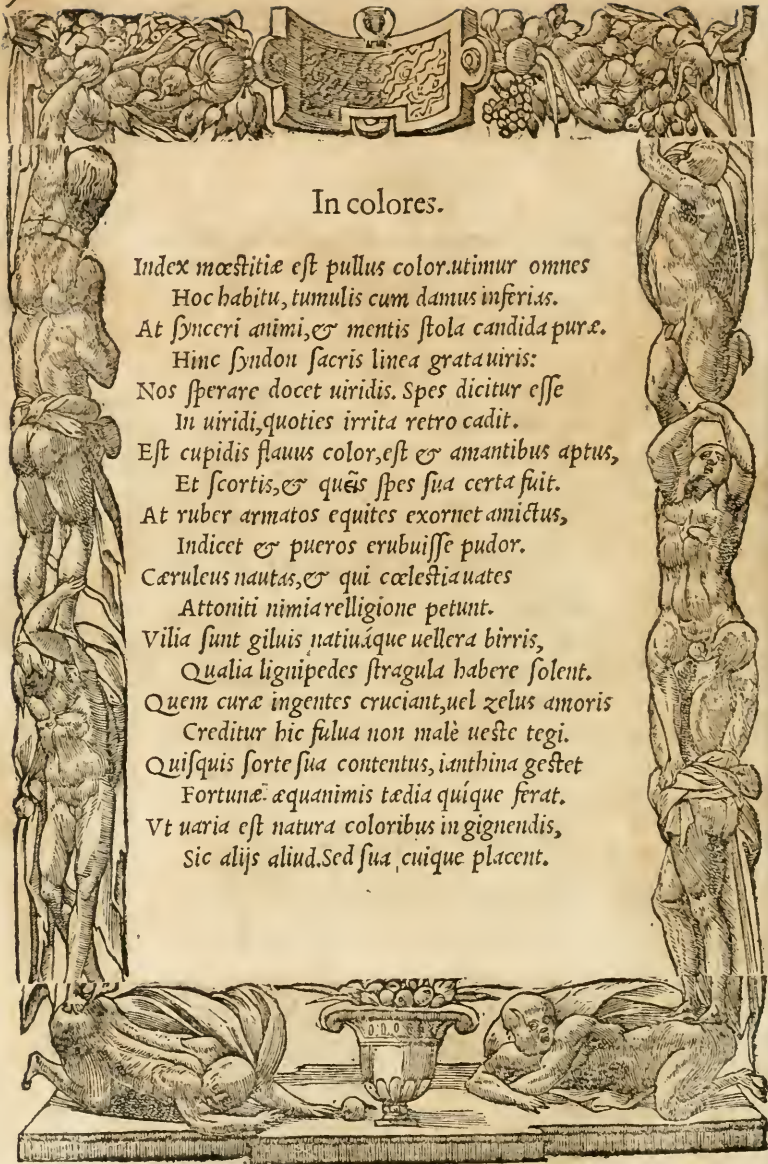 In colores.
Index mœstitiæ est pullus color.utimur omnes
Hoc habitu, tumulis cum damus inferias.
At synceri animi,& mentis stola candida puræ.
Hinc syndon sacris linea grata uiris:
Nos sperare docet uiridis. Spes dicitur esse
In uiridi,quoties irrita retro cadit.
Est cupidis flauus color,est & amantibus aptus,
Et scortis,& quêis spes sua certa fuit.
At ruber armatos equites exornet amictus,
Indicet & pueros erubuisse pudor.
Cæruleus nautas,& qui cœlestia uates
Attoniti nimia relligione petunt.
Vilia sunt giluis natiuáque uellera birris,
Qualia lignipedes stragula habere solent.
Quem curæ ingentes cruciant,uel zelus amoris
Creditur hic fulua non malè ueste tegi.
Quisquis sorte sua contentus, ianthina gestet
Fortunæ æquanimis tædia quíque ferat.
Vt uaria est natura coloribus in gignendis,
Sic alijs aliud.Sed sua cuique placent.